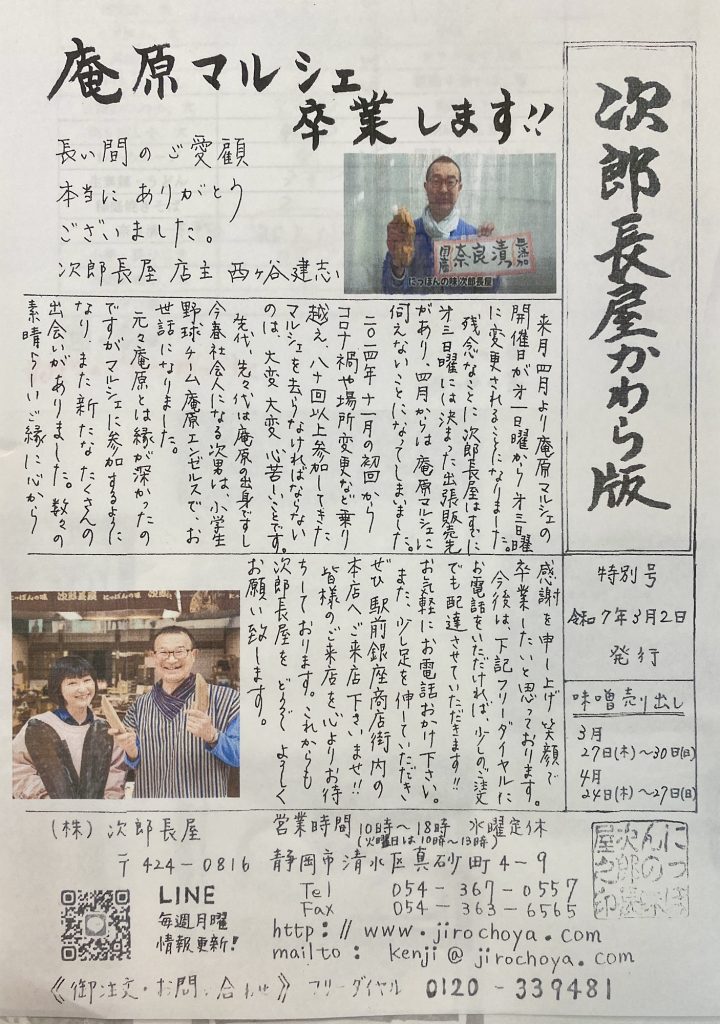 庵原マルシェ
卒業します!!
長い間のご愛顧
本当にありがとう
ございました。
次郎長屋 店主 西ヶ谷建志
無添加
奈良漬
国産
にっぽんの味次郎長屋
次郎長屋かわら版
特別号
令和7年3月2日
発行
味噌売り出し
3月
27日(木)〜30日(日)
4月
24日(木)〜27日(日)
来月四月より庵原マルシェの
開催日が才一日曜から才三日曜
に変更されることになりました。
残念なことに次郎長屋はすでに
才三日曜には決まった出張販売先
があり、四月からは庵原マルシェに
伺えないことになってしまいました。
二〇一四年十一月の初回から
コロナ禍や場所変更など乗り
越え、八十回以上参加してきた
マルシェを去らなければならない
のは、大変大変心苦しいことです。
先代、先々代は庵原の出身ですし
今春社会人になる次男は、小学生
野球チーム庵原エンゼルスで、お
世話になりました。
元々庵原とは縁が深かったの
ですがマルシェに参加するように
なり、また新たなたくさんの
出会いがありました。数々の
素晴らしいご縁に心から
感謝を申し上げ、笑顔で
卒業したいと思っております。
今後は、下記フリーダイヤルに
お電話をいただければ、少しのご注文
でも配達させていただきます!!
お気軽にお電話おかけ下さい。
また、少し足を伸していただき
ぜひ駅前銀座商店街内の
本店へご来店下さいませ!!
皆様のご来店を心よりお待
ちしております。これからも
次郎長屋を どうぞ よろしく
お願い致します。
にっぽんの味
次郎長屋
(株)次郎長屋
営業時間 10時〜18時 水曜定休
(火曜日は10時〜13時)
〒424-0816 静岡市清水区真砂町4-9
Tel 054-367-0557
Fax 054-363-6565
http://www.jirochoya.com
mailto: kenji@jirochoya.com
LINE
毎週月曜
情報更新!
《御注文・お問い合わせ》 フリーダイヤル 0120-339481